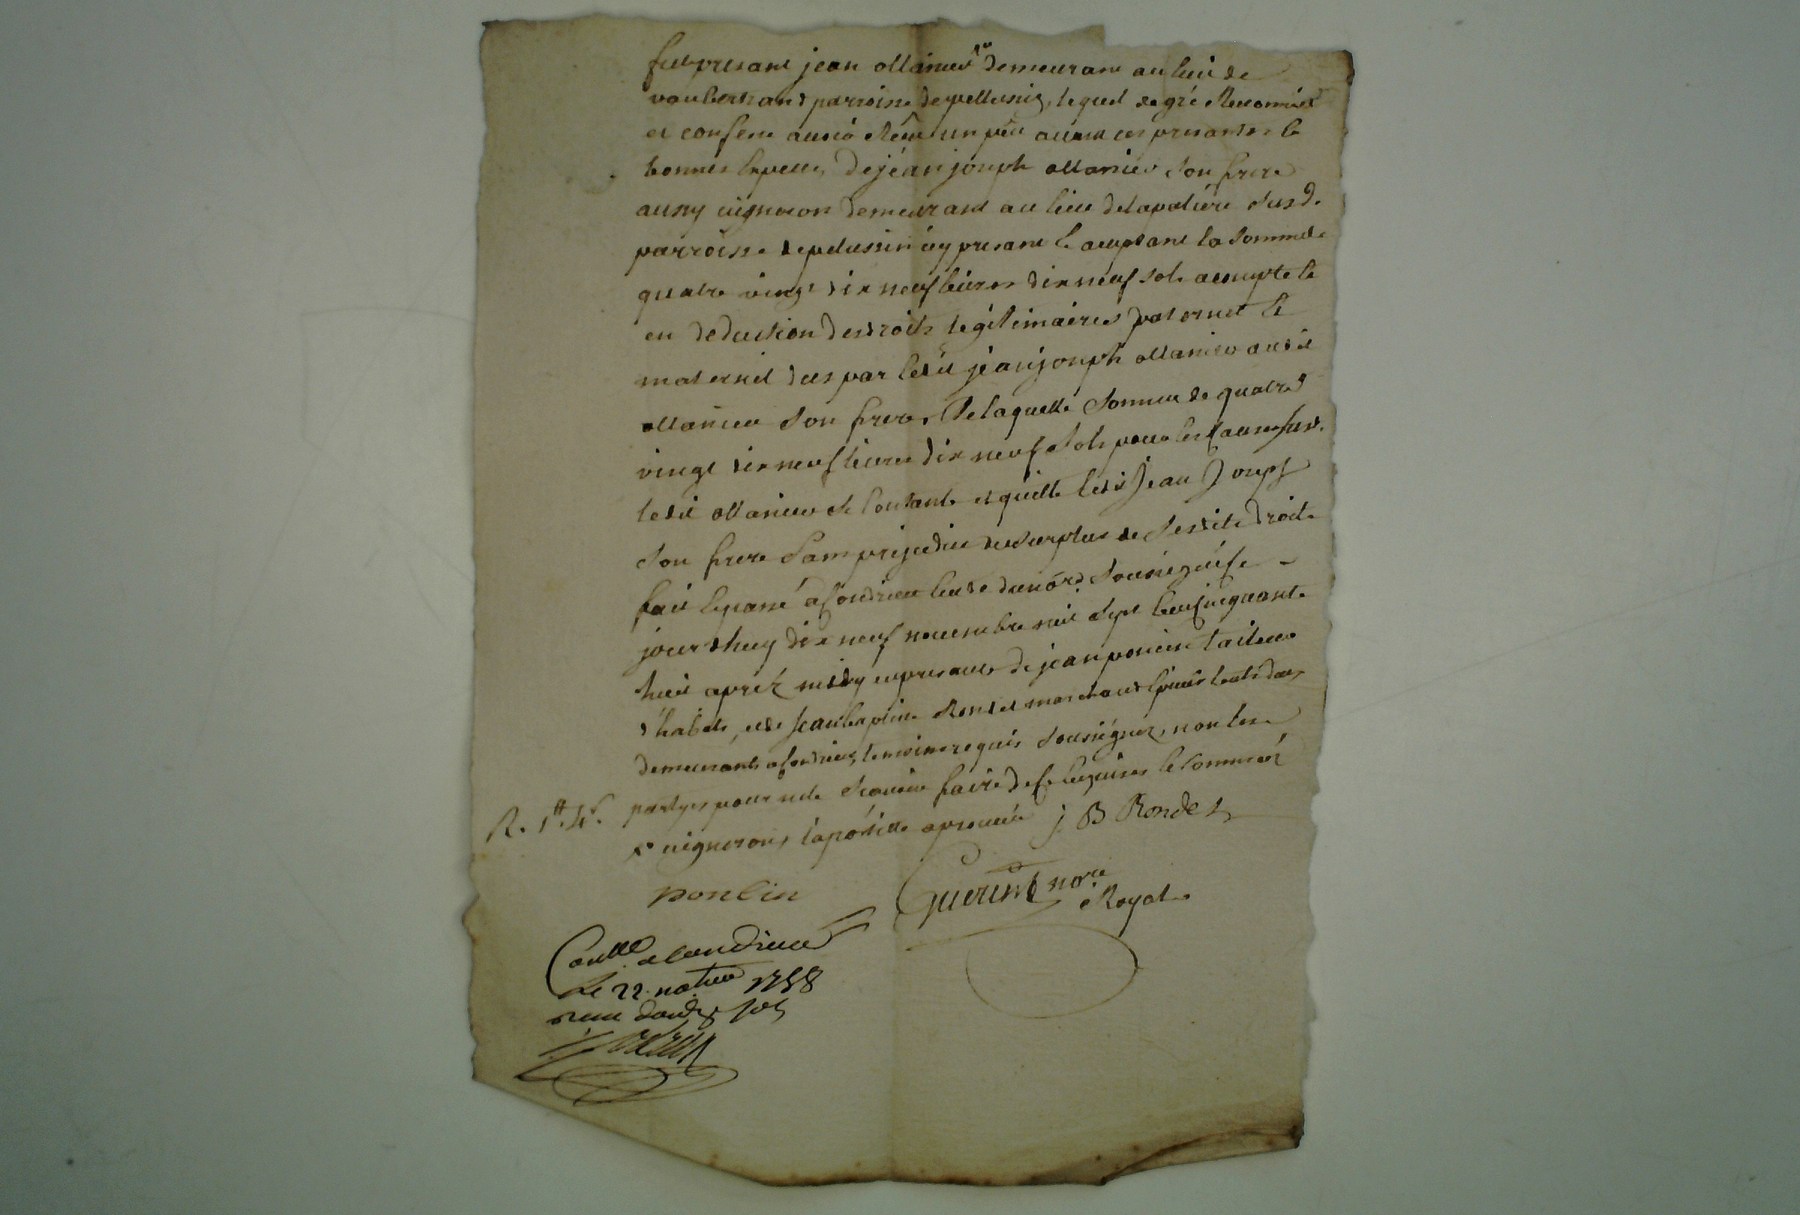 fut presant jean ollanier demeurant au lieu de
vaubertrand parroisse de pellussin, lequel de gré Reconnoist
et confesse avoir Receu un peu avant ces presantes le
bonnes Especes, de jéan joseph ollanier son frere
aussy vigneron demeurant au lieu de lapaliére susd.
parroisse de pelussin icy presant & acceptant la somme de
quatre vingt dix neuf livres dix neuf sols acompte &
en deduction des droits légitimaires paternel &
maternel dus par ledit jéan joseph ollanier audit
ollanier son frere, de laquelle somme de quatre
vingt dix neuf livres dix neuf sols pour les causes susd.
ledit ollanier se contante et quitte ledit Jean Joseph
son frere sans prejudice du surplus de sesdits droits
fait & passé a Condrieu Estude du no.re soussigné ce
jourdhuy dix neuf novembre mil sept cent cinquante
huit aprés midy en presance de jean poncin tailleur
d'habits, et de Jean baptiste Rondet marchand Epicier
demeurants a Condrieu, temoins requis soussignez, non les
partyes pour ne le scavoir faire de ce Enquises & sommées
vigneron, lapostille aprouvée j B Rondet
R. 1tt 4s.
poncin
Guerin no.re
Royal
Con.llé a Condrieu
Le 22 no.bre 1758
Reçu douze sols